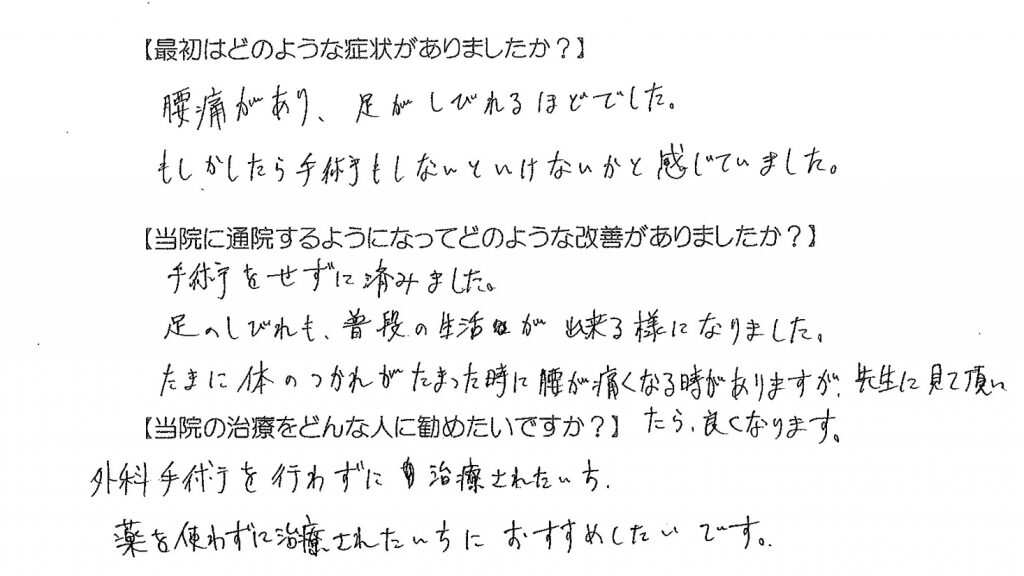 【最初はどのような症状がありましたか？】
腰痛があり、足がしびれるほどでした。
もしかしたら手術もしないといけないかと感じていました。
【当院に通院するようになってどのような改善がありましたか？】
手術をせずに済みました。
足のしびれも、普段の生活が出来る様になりました。
たまに体のつかれがたまった時に腰が痛くなる時がありますが、先生に見て頂い
たら、良くなります。
【当院の治療をどんな人に勧めたいですか？】
外科手術を行わずに治療されたい方、
薬を使わずに治療されたい方におすすめしたいです。